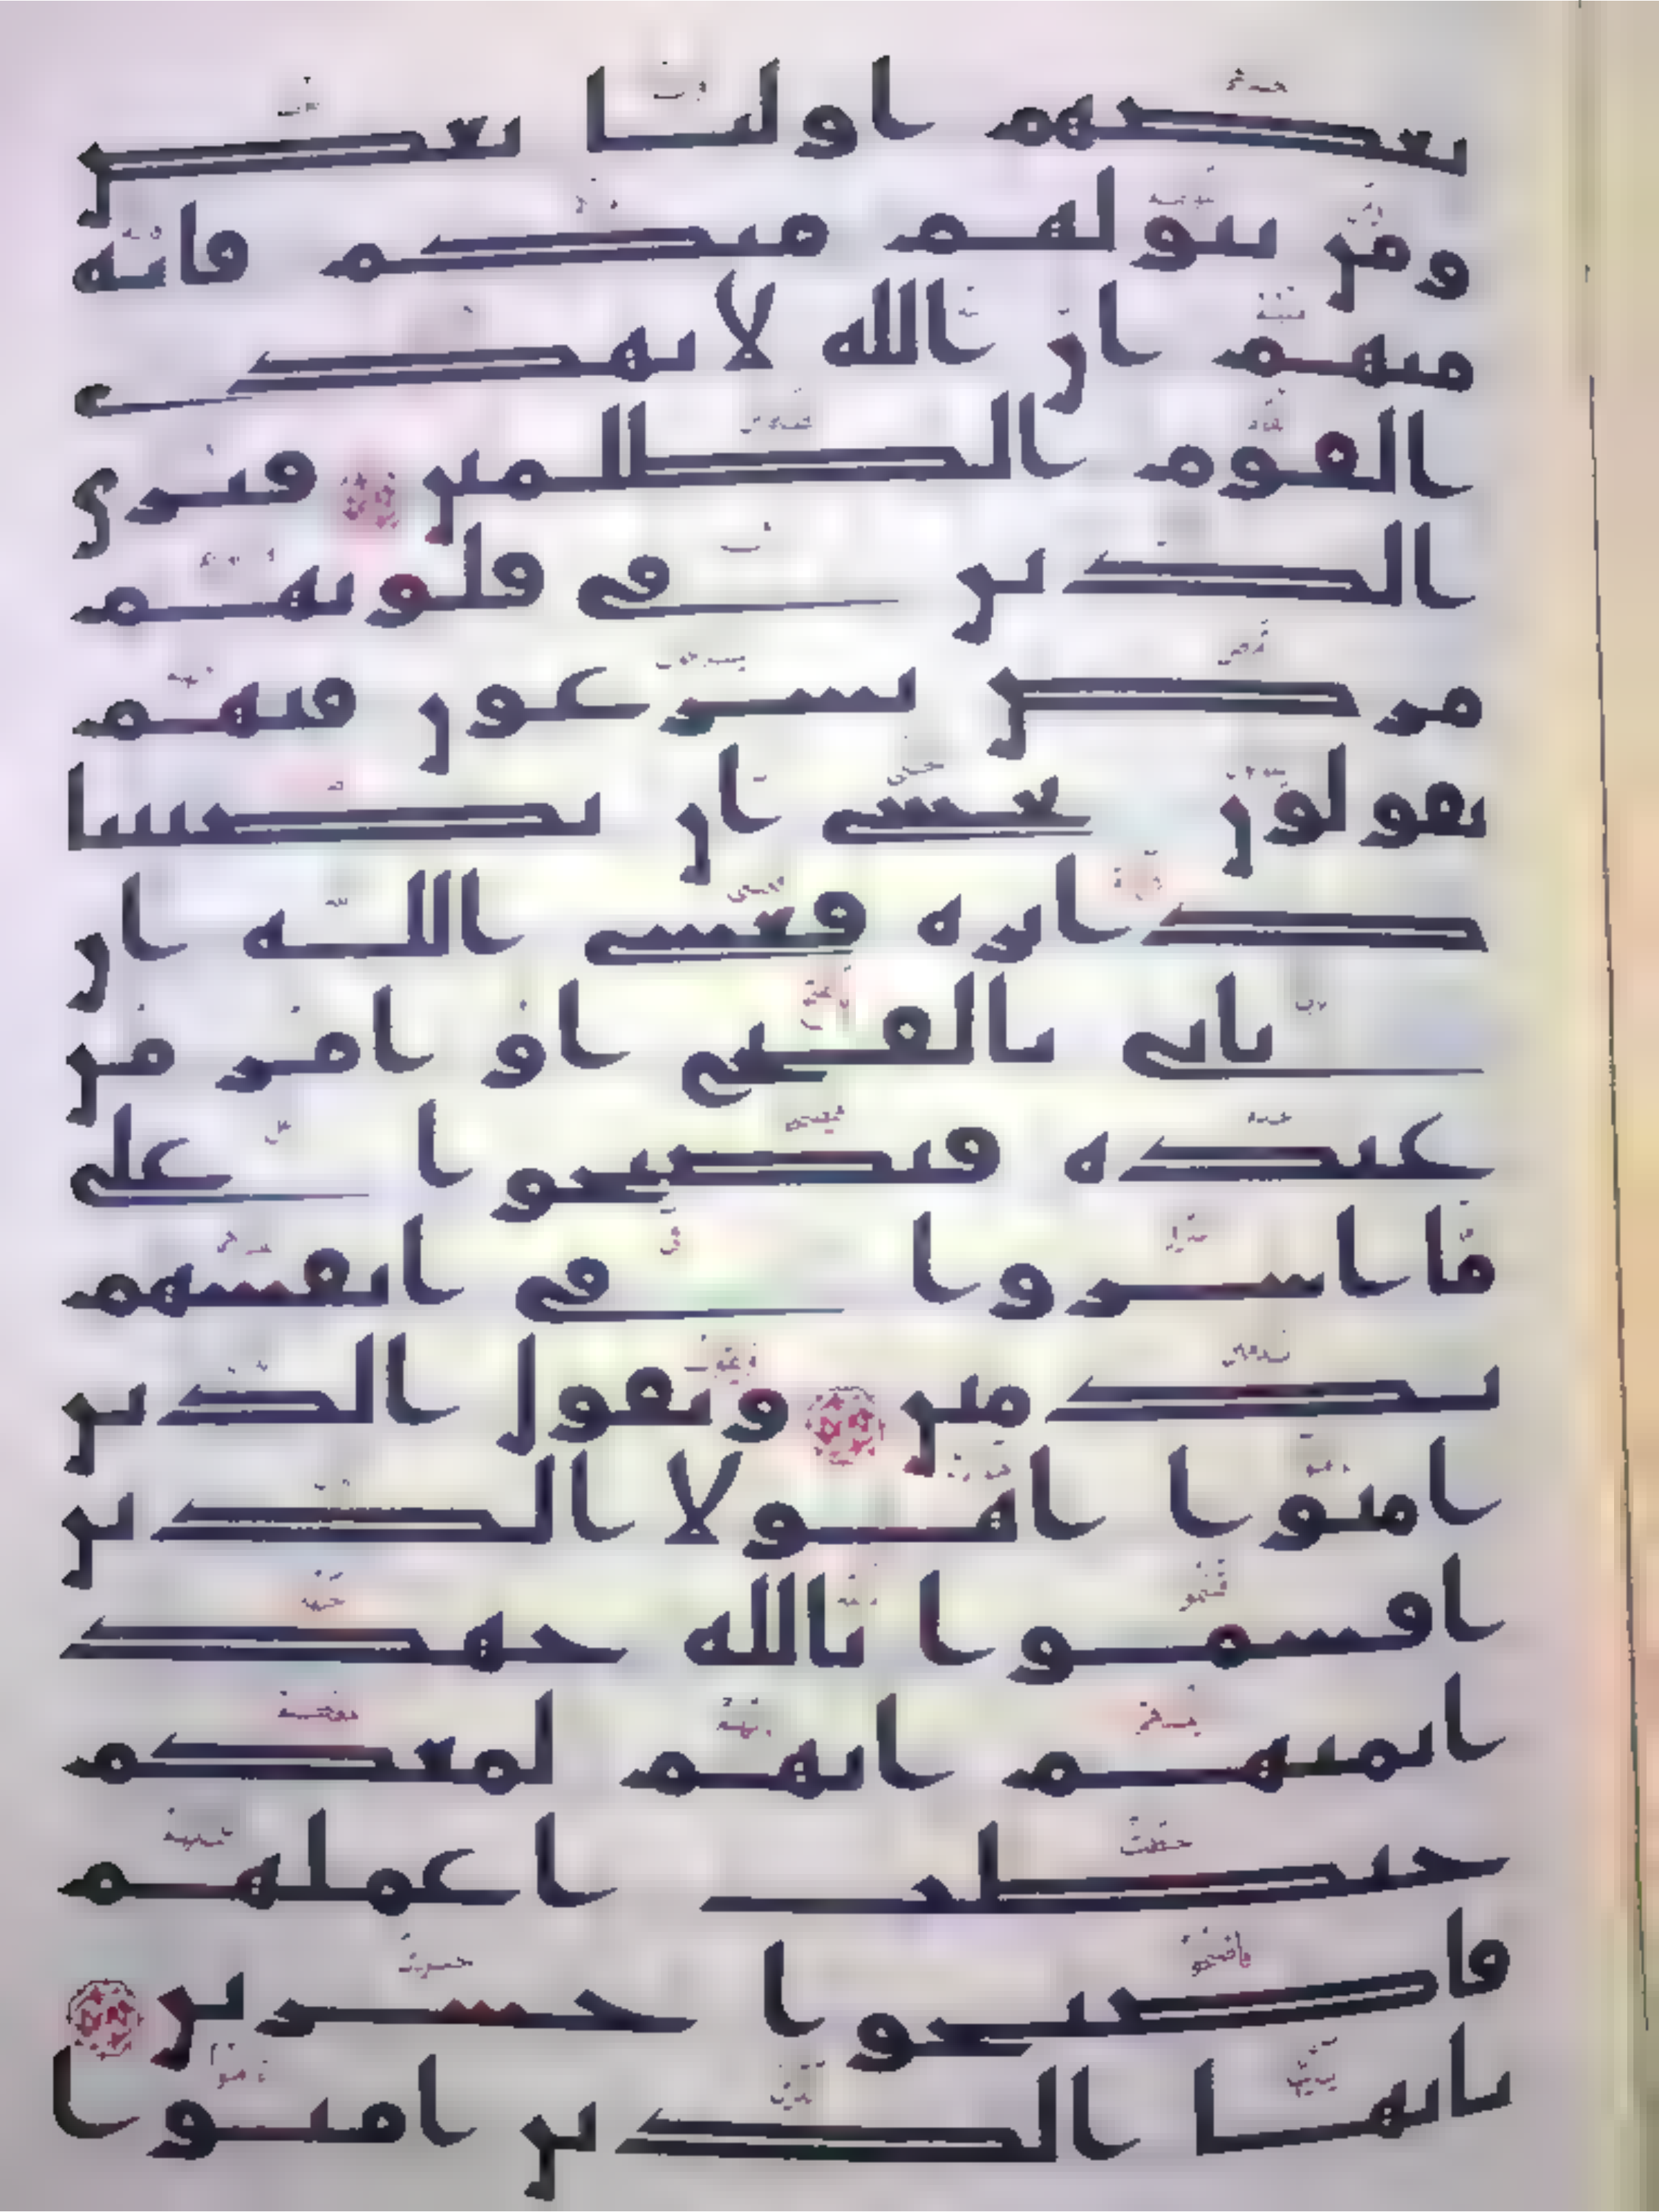 بعضهم اوليا بعض
ومن يتولهم منكم فانه
منهم ان الله لا يهدى
القوم الظلمين فترى
الذين فى قلوبهم
مرض يسرعون فيهم
يقولون نخشى ان تصيبنا
دايره فعسى الله ان
ياتى بالفتح او امر من
عنده فيصبحوا على
ما اسروا فى انفسهم
ندمين ويقول الذين
امنوا اهولا الذين
اقسموا بالله جهد
ايمنهم انهم لمعكم
حبطت اعملهم
فاصبحوا خسرين
يايها الذين امنوا